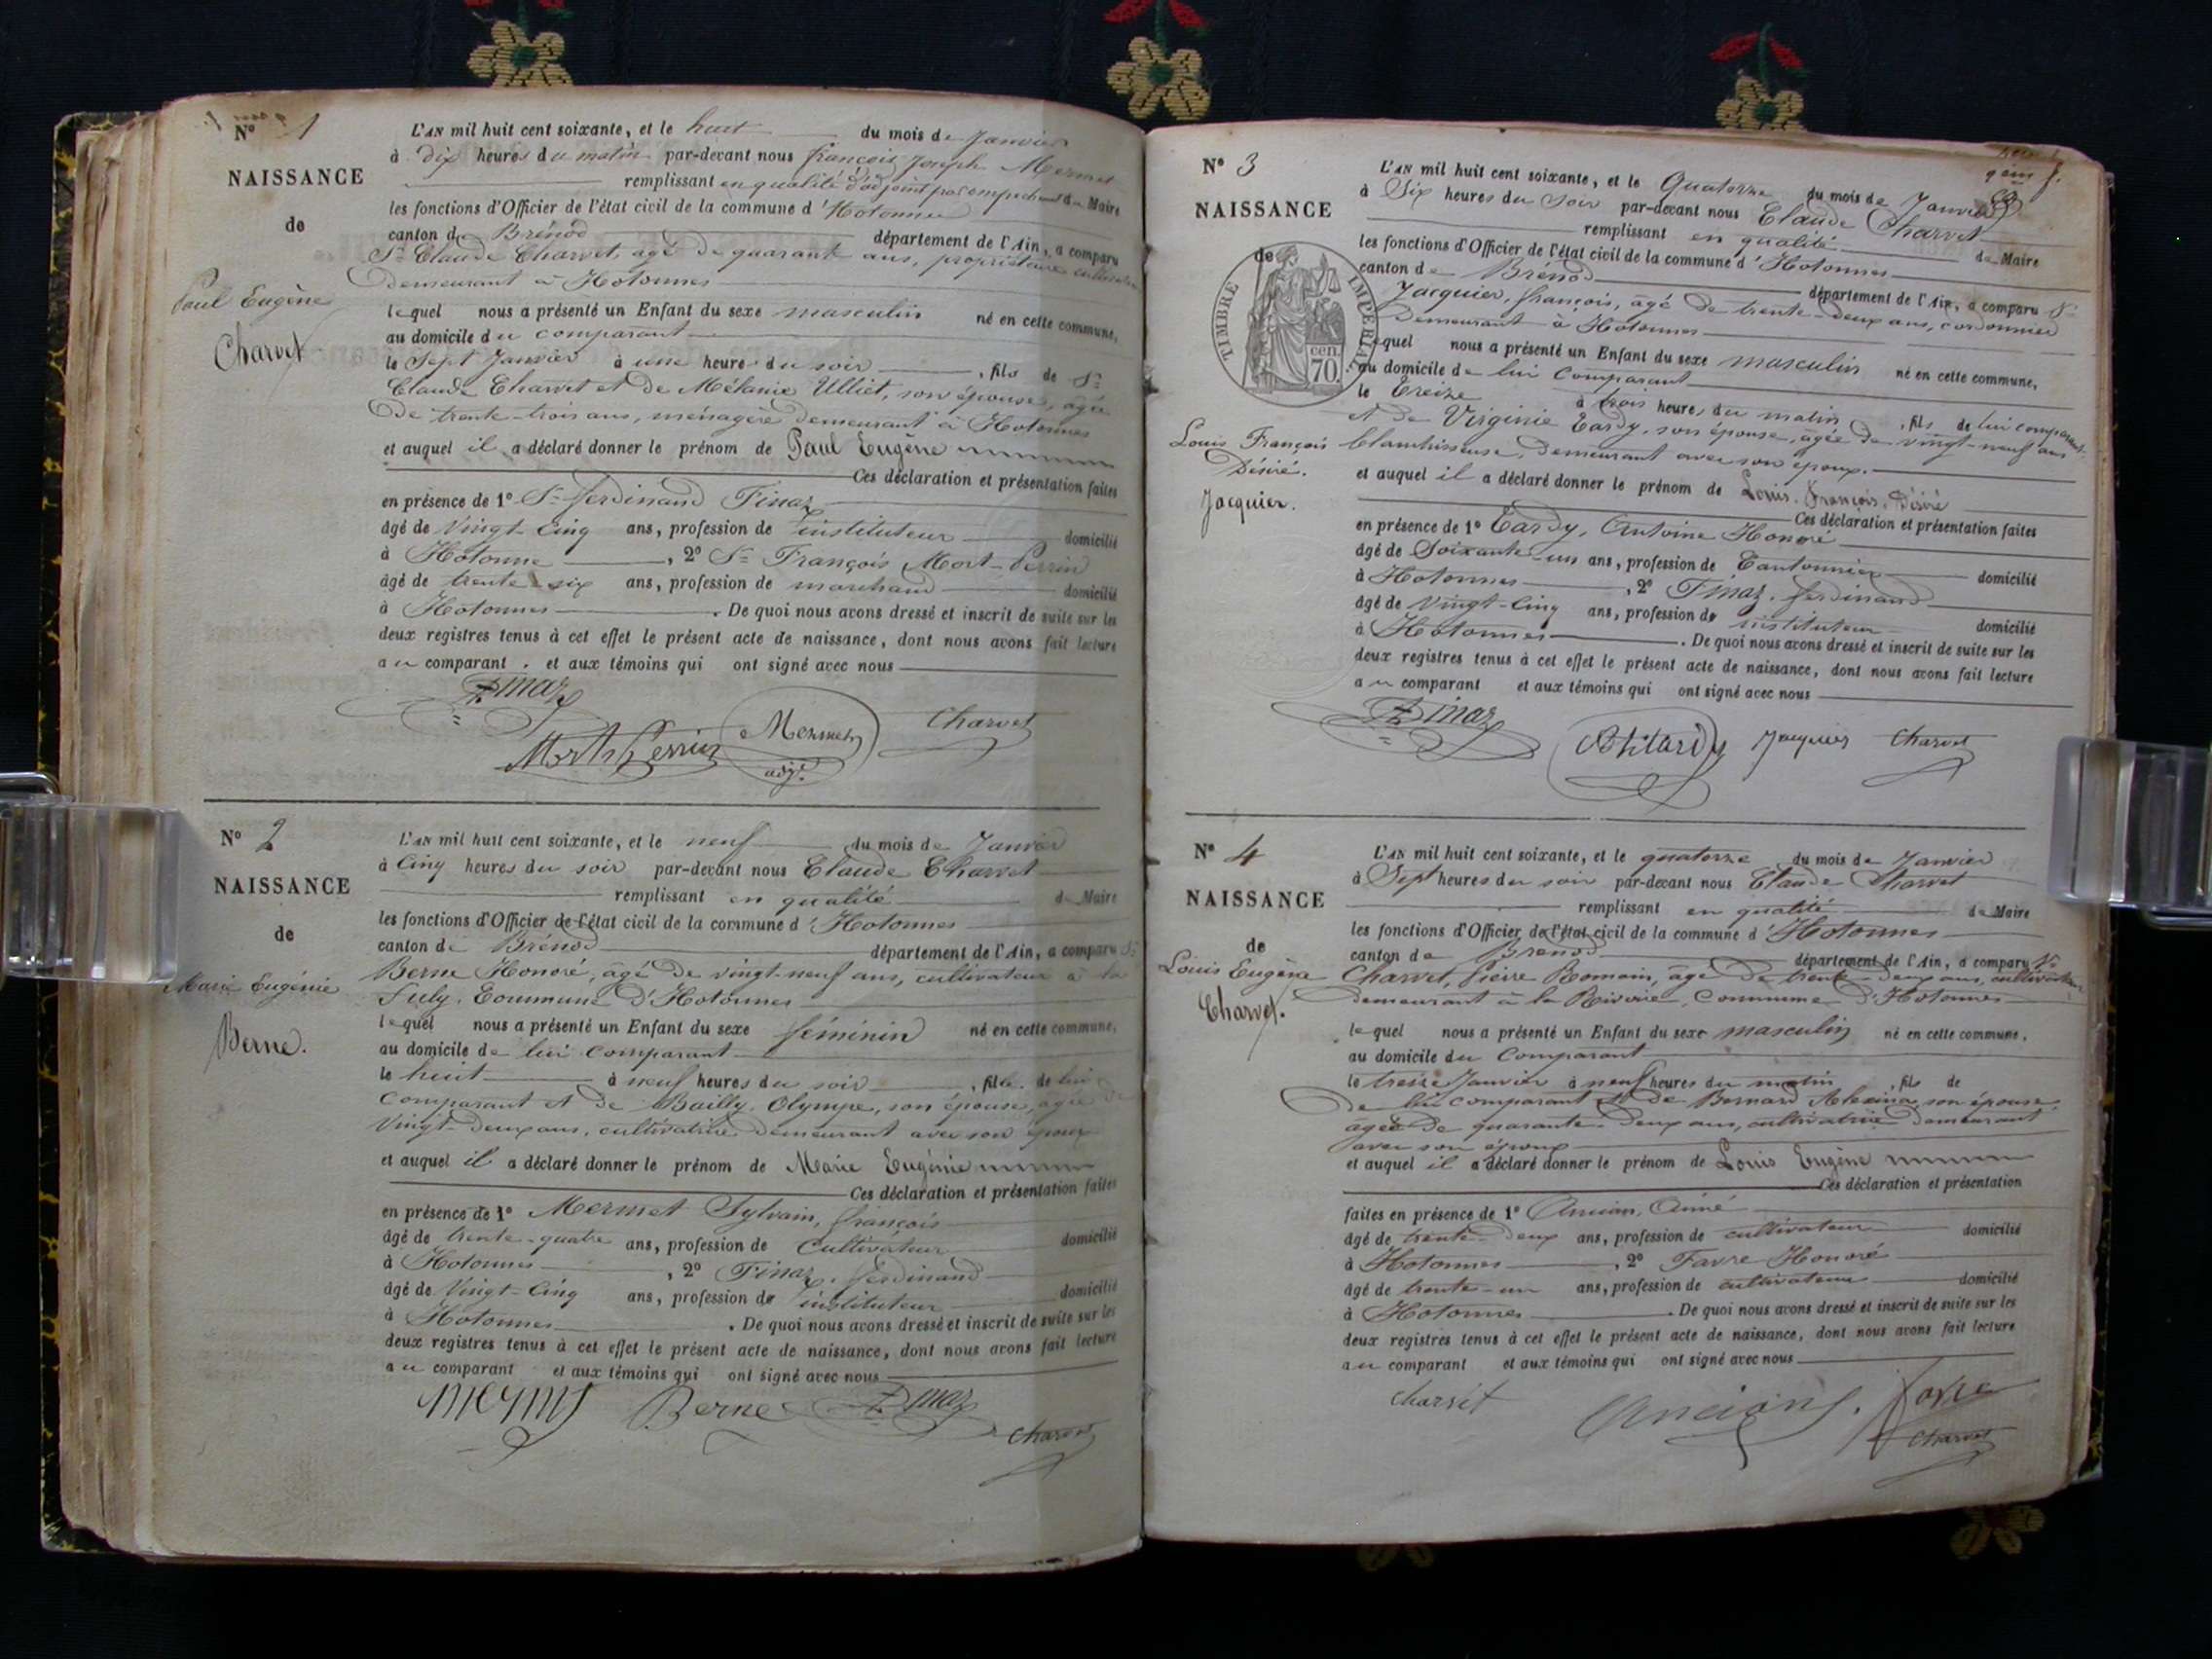 N° 1
NAISSANCE
de
Paul Eugène
Charvet
L'AN mil huit cent soixante, et le huit du mois de Janvier
à dix heures du matin par-devant nous françois Joseph Mermet
remplissant en qualité d'adjoint par empechement du Maire
les fonctions d'Officier de l'état civil de la commune d'Hotonnes
canton de Brénod département de l'Ain, a comparu
Sr Claude Charvet, agé de quarante ans, propriétaire cultivateur
demeurant à Hotonnes
lequel nous a présenté un Enfant du sexe masculin né en cette commune,
au domicile du comparant
le Sept Janvier à une heure du soir, fils de Sr
Claude Charvet et de Mélanie Ulliet, son épouse, agée
de trente-trois ans, ménagère demeurant à Hotonnes
et auquel il a déclaré donner le prénom de Paul Eugène
Ces déclaration et présentation faites
en présence de 1° Sr ferdinand Finaz
âgé de Vingt-Cinq ans, profession de instituteur domicilié
à Hotonne, 2° Sr François Mort-Perrin
âgé de trente-six ans, profession de marchand domicilié
à Hotonnes. De quoi nous avons dressé et inscrit de suite sur les
deux registres tenus à cet effet le présent acte de naissance, dont nous avons fait lecture
au comparant. et aux témoins qui ont signé avec nous
Finaz
Mort Perrin Mermet Charvet
adjt
N° 2
NAISSANCE
de
Marie Eugénie
Berne.
L'AN mil huit cent soixante, et le neuf du mois de Janvier
à Cinq heures du soir par-devant nous Claude Charvet
remplissant en qualité de Maire
les fonctions d'Officier de l'état civil de la commune d'Hotonnes
canton de Brénod département de l'Ain, a comparu Sr
Berne Honoré, âgé de vingt-neuf ans, cultivateur à la
July, Commune d'Hotonnes
lequel nous a présenté un Enfant du sexe féminin né en cette commune,
au domicile de lui comparant
le huit à neuf heures du soir, fille de lui
comparant et de Bailly, Olympe, son épouse, agée de
Vingt-deux ans, cultivatrice demeurant avec son époux
et auquel il a déclaré donner le prénom de Marie Eugénie
Ces déclaration et présentation faites
en présence de 1° Mermet Sylvain, françois
âgé de trente-quatre ans, profession de Cultivateur domicilié
à Hotonnes, 2° Finaz, ferdinand
âgé de Vingt-Cinq ans, profession de instituteur domicilié
à Hotonnes. De quoi nous avons dressé et inscrit de suite sur les
deux registres tenus à cet effet le présent acte de naissance, dont nous avons fait lecture
au comparant et aux témoins qui ont signé avec nous
Berne Finaz
Charvet
N° 3
NAISSANCE
de
TIMBRE IMPERIAL
70 cen.
Louis François
Désiré.
Jacquier.
L'AN mil huit cent soixante, et le Quatorze du mois de Janvier
à Six heures du Soir par-devant nous Claude Charvet
remplissant en qualité de Maire
les fonctions d'Officier de l'état civil de la commune d'Hotonnes
canton de Brénod département de l'Ain, a comparu Sr
Jacquier, françois, âgé de trente-deux ans, cordonnier
demeurant à Hotonnes
lequel nous a présenté un Enfant du sexe masculin né en cette commune,
au domicile de lui Comparant
le treize à trois heures du matin, fils de lui comparant
et de Virginie Tardy, son épouse, âgée de vingt-neuf ans
blanchisseuse, demeurant avec son époux.
et auquel il a déclaré donner le prénom de Louis, François, Désiré
Ces déclaration et présentation faites
en présence de 1° Tardy, Antoine Honoré
âgé de Soixante-un ans, profession de Cantonnier domicilié
à Hotonnes, 2° Finaz, ferdinand
âgé de Vingt-Cinq ans, profession de instituteur domicilié
à Hotonnes. De quoi nous avons dressé et inscrit de suite sur les
deux registres tenus à cet effet le présent acte de naissance, dont nous avons fait lecture
au comparant et aux témoins qui ont signé avec nous
Finaz Jacquier Charvet
N° 4
NAISSANCE
de
Louis Eugène
Charvet.
L'AN mil huit cent soixante, et le quatorze du mois de Janvier
à Sept heures du soir par-devant nous Claude Charvet
remplissant en qualité de Maire
les fonctions d'Officier de l'état civil de la commune d'Hotonnes
canton de Brénod département de l'Ain, a comparu Sr
Charvet, Pierre Romain, âgé de trente-deux ans, cultivateur
demeurant à la Rivoire, Commune d'Hotonnes
lequel nous a présenté un Enfant du sexe masculin né en cette commune,
au domicile du Comparant
le treize Janvier à neuf heures du matin, fils de
de lui comparant et de Bernard Alexina, son épouse,
agée de quarante-deux ans, cultivatrice demeurant
avec son époux
et auquel il a déclaré donner le prénom de Louis Eugène
Ces déclaration et présentation
faites en présence de 1° Ancian, Aimé
âgé de trente-deux ans, profession de cultivateur domicilié
à Hotonnes, 2° Favre Honoré
âgé de trente-un ans, profession de cultivateur domicilié
à Hotonnes. De quoi nous avons dressé et inscrit de suite sur les
deux registres tenus à cet effet le présent acte de naissance, dont nous avons fait lecture
au comparant et aux témoins qui ont signé avec nous
Charvet Favre
Charvet